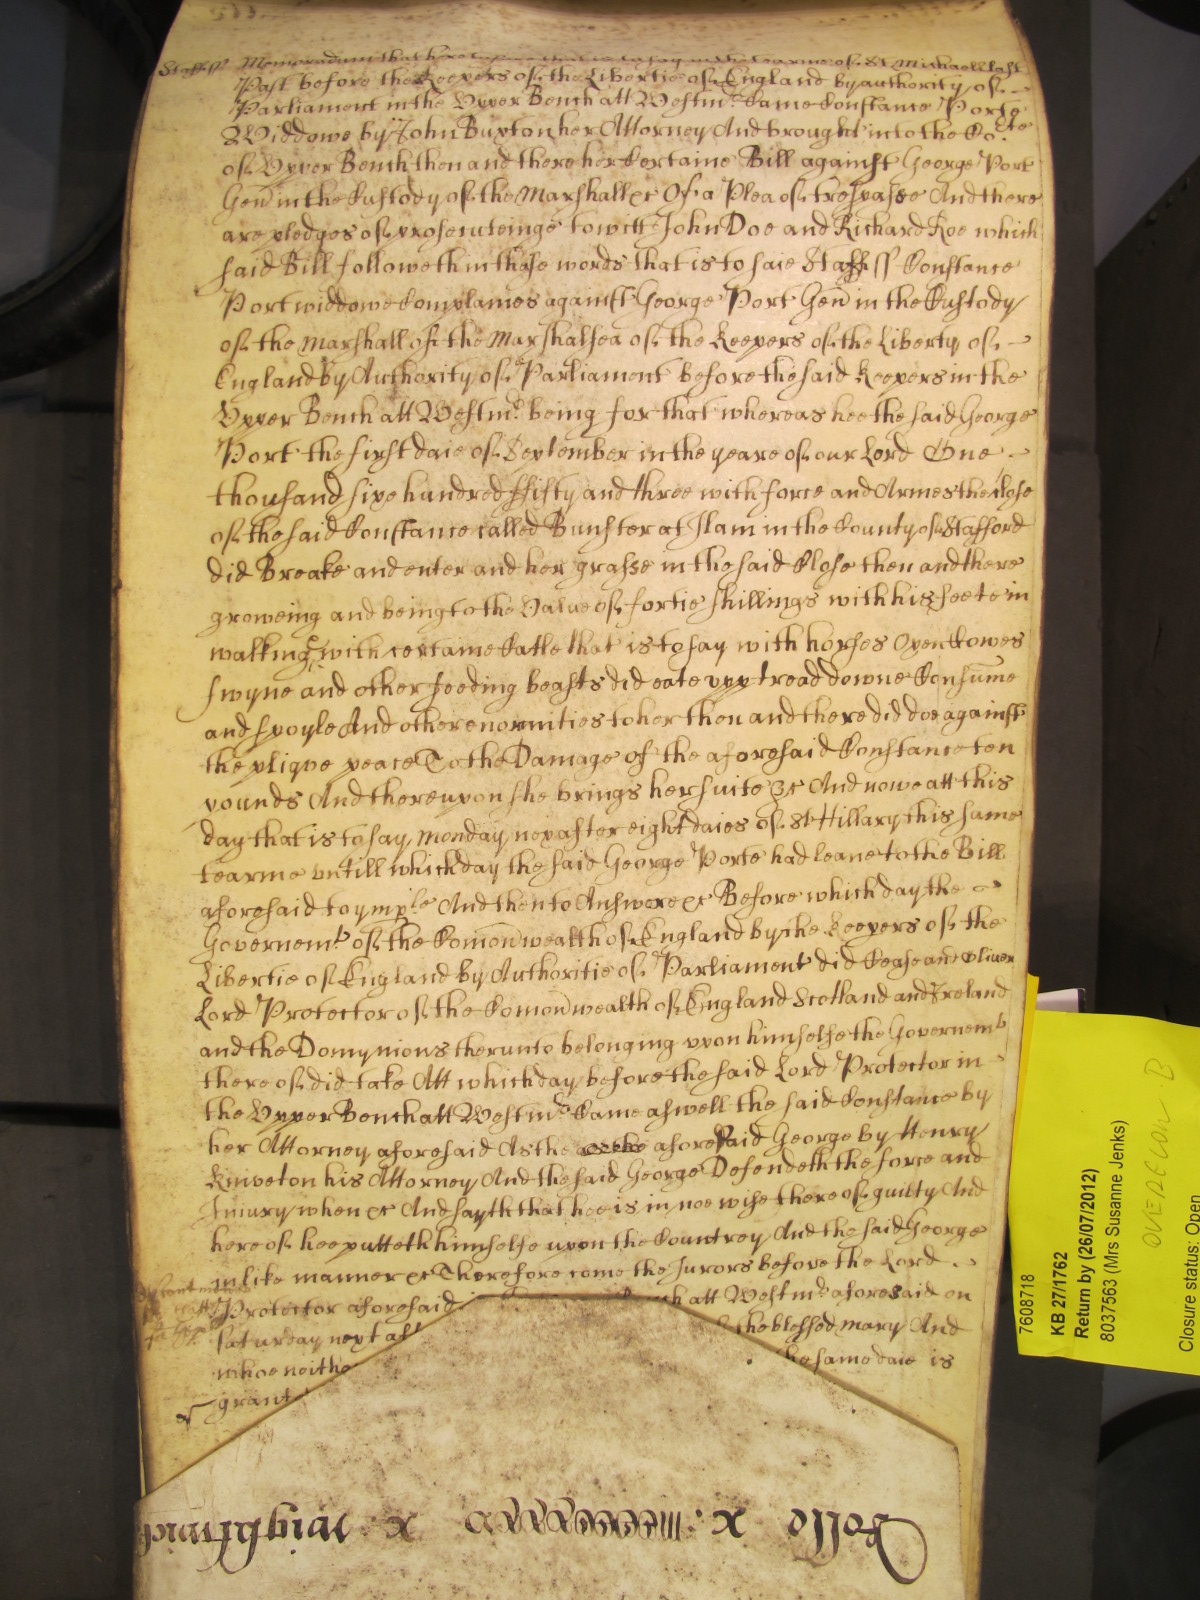 Staff ss Memorandum that heretofore that is to say in the tearme of St Michaell last
Past before the Keepers of the Libertie of England by authority of
Parliament in the Upper Bench att Westmr Came Constance Porte
Widdowe by John Buxton her Attorney And brought into the Cote
of Upper Bench then and there her Certaine Bill against George Port
Gen in the Custody of the Marshall &c Of a Plea of trespasse And there
are pledges of prosecuteinge to witt John Doe and Richard Roe which
said Bill followeth in these words that is to saie Staff ss Constance
Port widdowe Complaines against George Port Gen in the Custody
of the Marshall of the Marshalsea of the Keepers of the Liberty of
England by Authority of Parliament before the said Keepers in the
Upper Bench att Westmr being for that whereas hee the said George
Port the first daie of September in the yeare of our Lord One
thousand sixe hundred ffifty and three with force and Armes the close
of the said Constance called Bunster at Ilam in the County of Stafford
did Breake and enter and her grasse in the said Close then and there
groweing and being to the Value of fortie shillings with his feete in
walking & with certaine Catle that is to say with horses Oxen Cowes
swyne and other feeding beasts did eate upp tread downe Consume
and spoyle And other enormities to her then and there did doe against
the pliqve peace To the Damage of the aforesaid Constance ten
pounds And thereupon she brings her suite &c And nowe att this
day that is to say Monday nex after eight daies of St Hillary this same
tearme untill which day the said George Porte had leave to the Bill
aforesaid to ymple And then to Answere &c Before which day the
Governemt of the Comonwealth of England by the Keepers of the
Libertie of England by Authoritie of Parliament did Cease and Oliver
Lord Protector of the Comonwealth of England Scotland and Ireland
and the Domynions therunto belonging upon himselfe the Governemt
there of did take Att which day before the said Lord Protector in
the Upper Bench att Westmr Came aswell the said Constance by
her Attorney aforesaid As the aforesaid George by Henry
Kniveton his Attorney And the said George Defendeth the force and
Iniury when &c And sayth that hee is in noe wise there of guilty And
here of hee putteth himselfe upon the Countrey And the said George
in like manner &c Therefore come the Jurors before the Lord
Protector aforesaid att Westmr aforesaid on
saturday next aft the blessed mary And
whoe neithe he same daie is
grant
Rollo x
x wightwick
7608718
KB 27/1762
Return by (26/07/2012)
8037563 (Mrs Susanne Jenks)
Closure status: Open
OVERFLOW B